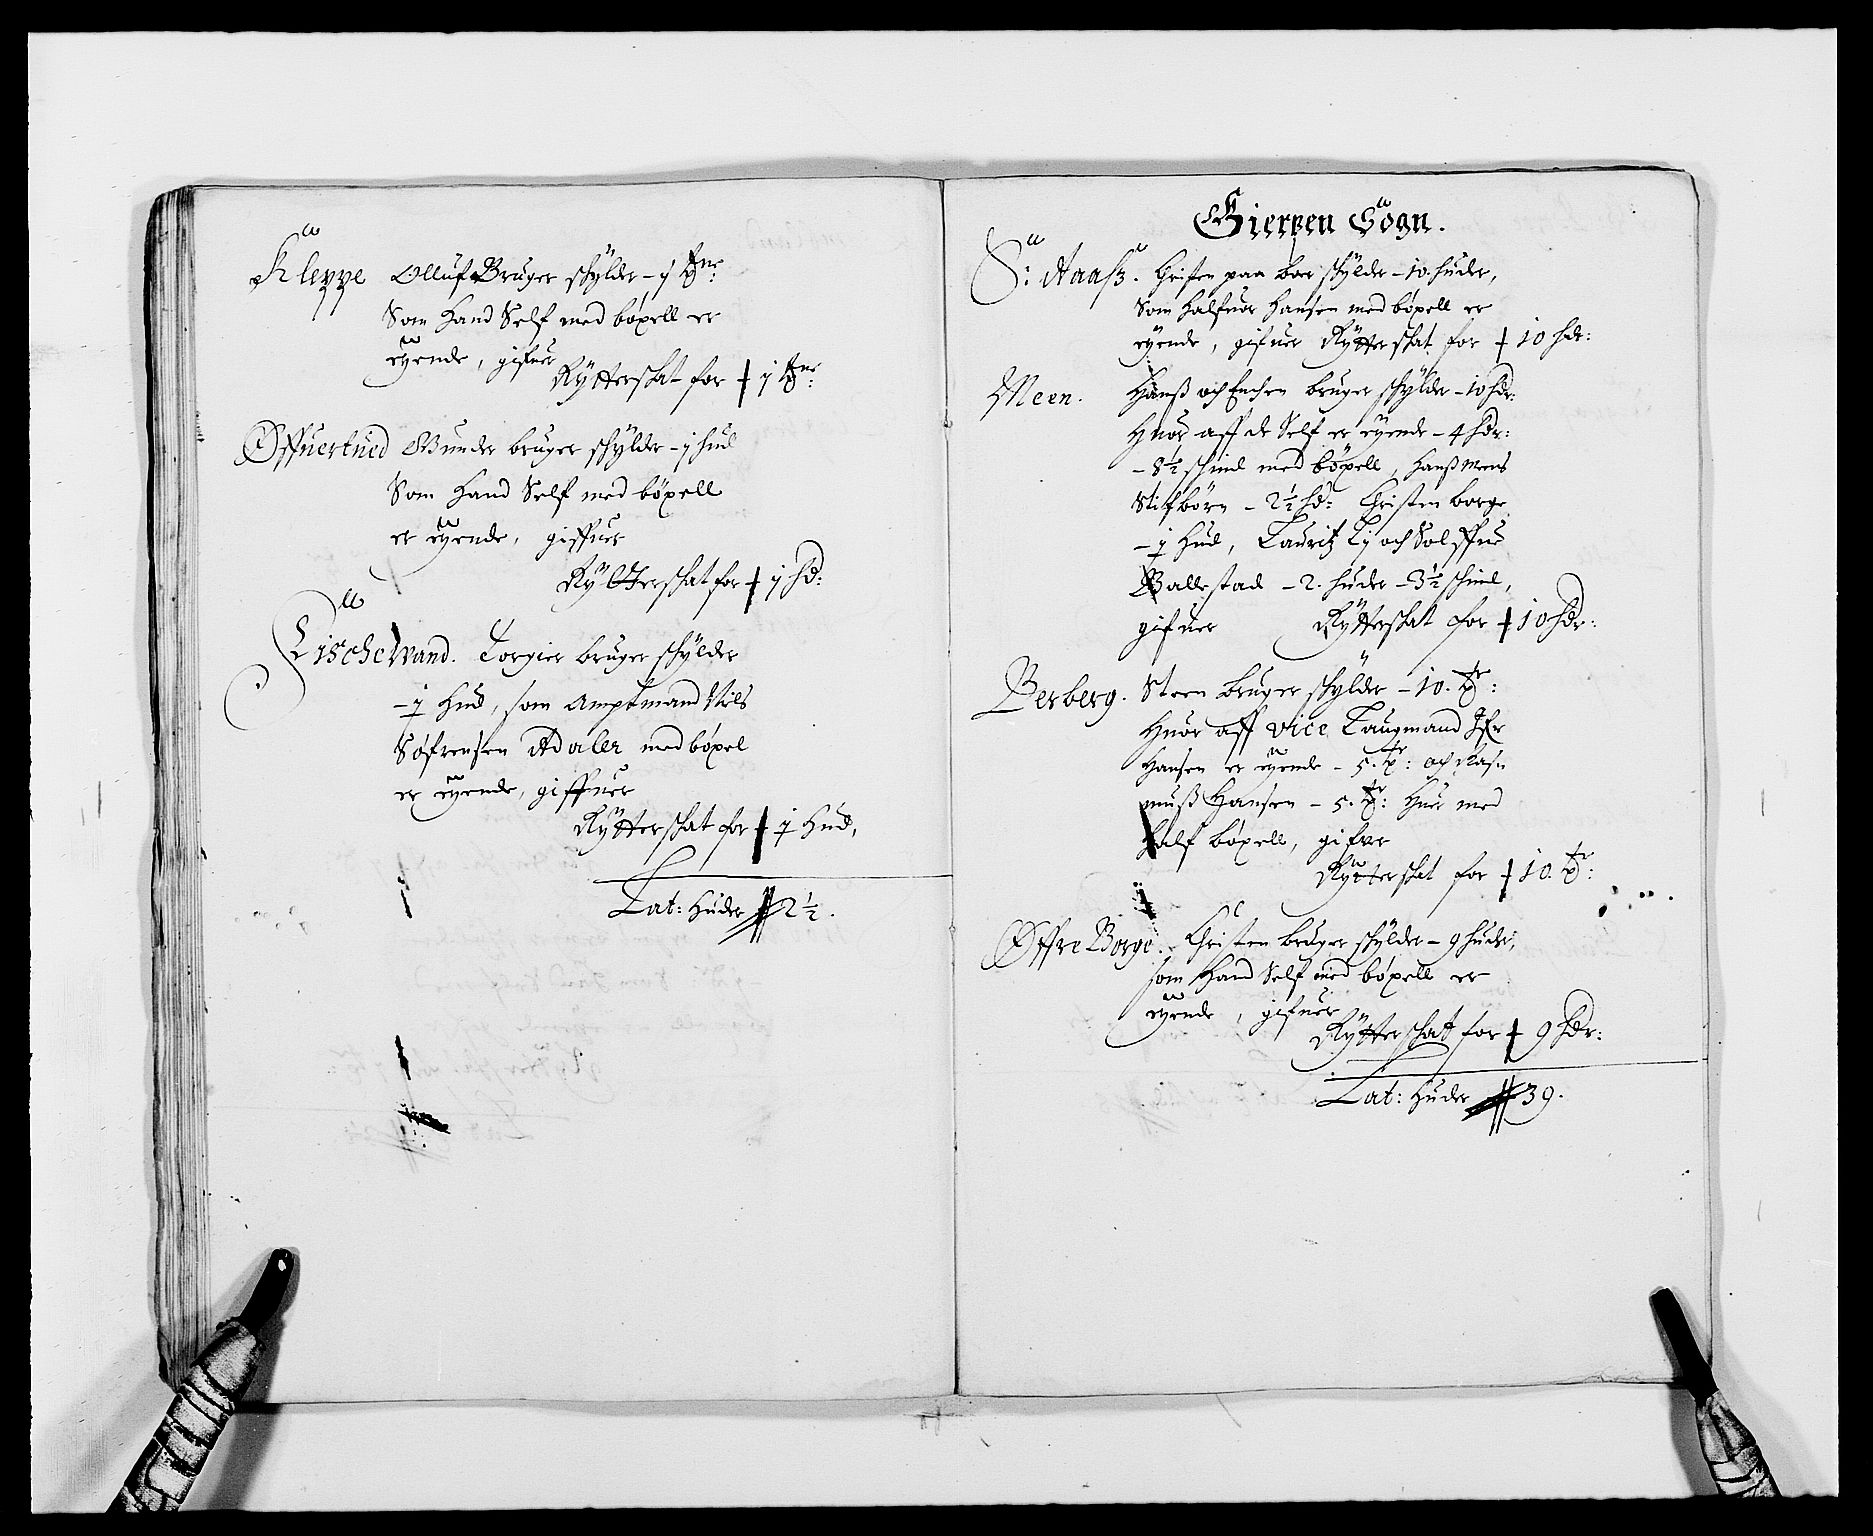 Kleppe Olluf Bruger schylder – j tne:
Som Hand Self med böxell er
eyende, gifuer
Rÿtterskat for j tne:
Øffuertued Gunder bruger schylder – j hud
Som Hand Self med böxell
er eyende, giffuer
Rÿtterskat for j hd:
Lischevand. Torgier bruger schÿlder
– j Hud, som Amptmand Niels
Söfrensen Adaler med böxel
er eyende, giffuer
Rÿtterskat for j Hud,
Lat: Huder 2½.
Gierpen Sogn.
S: Aaass. Christen paa boer schÿlder – 10. huder,
Som Halfuor Hansen med böxell er
eyende, gifuer Rÿtterskat for 10 hdr:
Meen. Hanss och Enchen bruger schÿlder – 10 hdr:
Huor aff de Self er eyende – 4 hdr:
– 8½ schind med böxell, Hanss Mens
Stifbörn – 2½ hd: Christen borge
– j Hud, Lauritz Lj och Solffue
Ballestad – 2. huder – 3½ schind,
gifuer Rÿtterskat for 10 hdr:
Berberg. Steen bruger schÿlder – 10. tr:
Huor aff vice Laugmand
Hansen er eyende – 5. tr: och Ras-
muss Hansen – 5. tr: Huer med
half böxell, gifver
Rÿtterskat for 10. tr:
Øffre Borge. Christen bruger schÿlder – 9 huder,
som Hand Self med böxell er
eyende, gifuer
Rÿtterskat for 9 hdr:
Lat: Huder 39.